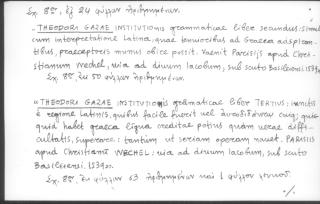 Σχ. 8ον, ἐξ 24 φύλλων ἠριθμημένων.
„ THEODORI GAZAE INSTITUTIONIS grammaticae liber secundus: simul
cum interpretatione Latina, quae tenuioribus ad Graeca adspiran-
tibus, praeceptoris munus obire possit. Vaenit Parisiis apud Chri-
stianum Wechel, uia ad diuum Iacobum, sub scuto Basileiensi. 1539.
Σχ. 8ον, ἐκ 50 φύλλων ἠριθμημένων.
„ THEODORI GAZAE INSTITUTIONIS grammaticae liber TERTIUS: insertis
è regione Latinis, quibus facile fuerit uel
quid habet graeca lingua creditae potius quàm uerae diffi-
cultatis, superare: tantum ut seriam operam nauet. PARISIIS
apud Christianū WECHEL: uia ad diuum Iacobum, sub scuto
Basileiensi. 1539.
Σχ. 8ον, ἐκ φύλλων 63 ἠριθμημένων καὶ 1 φύλλου λευκοῦ.